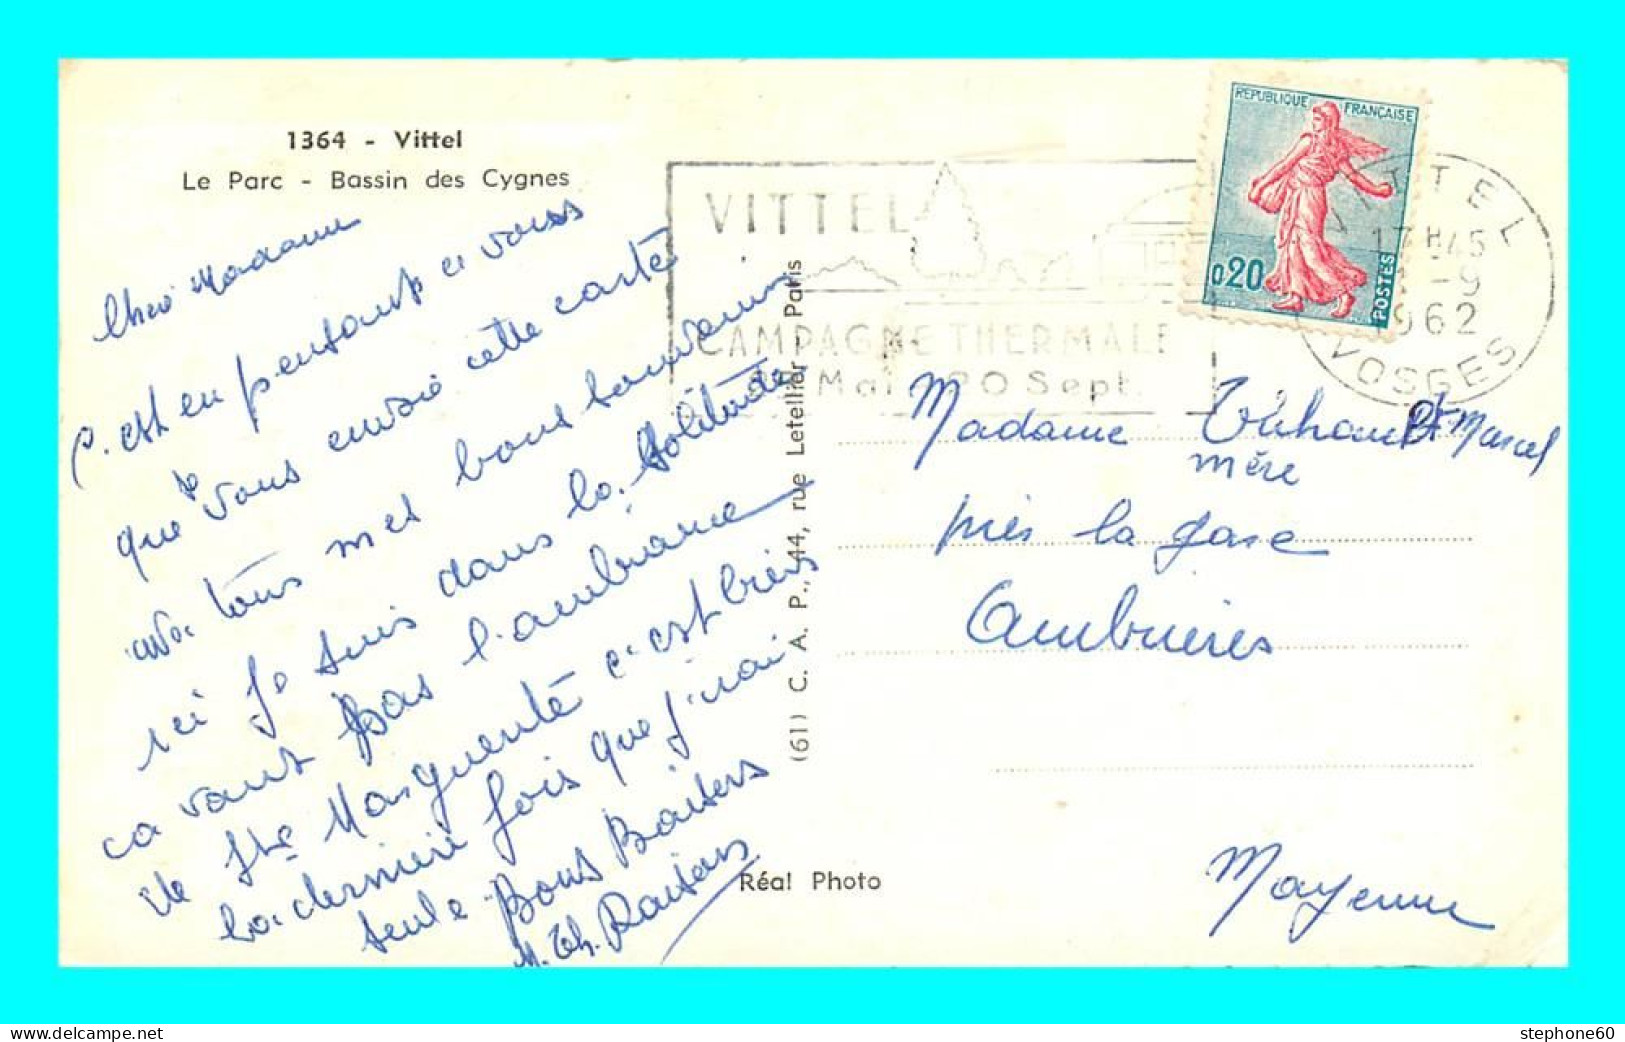 1364 - Vittel
Le Parc - Bassin des Cygnes
Cher Madame
C'est en pensant a vous
que je vous envoie cette carte
avec tous mes bons souvenirs
ici je suis dans la solitude
ca vaut pas l'ambiance
de Ste Marguerite c'est bien
la derniere fois que j'irai
seule Bons Baisers
M. Th.
(61) C. A. P., 44, rue Letellier Paris
Réal Photo
VITTEL
CAMPAGNE THERMALE
Mai 20 Sept.
REPUBLIQUE FRANÇAISE
0,20
POSTES
VITTEL
17H45
-9
1962
VOSGES
Madame Marcel
mère
près la gare
Ambrieres
Mayenne
stephone60
www.delcampe.net